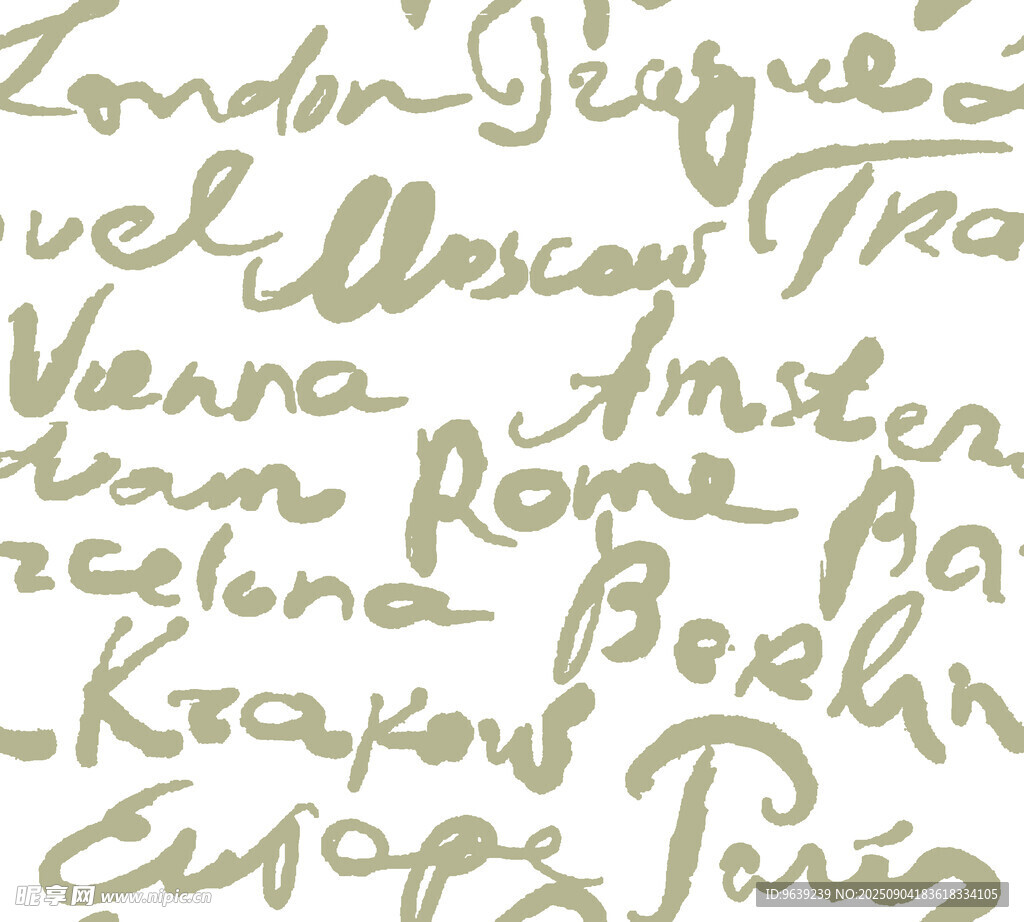 London Prague
vel Moscow Tra
Vienna Amster
dam Rome Ba
rcelona Berlin
Krakow Paris
Europe
昵享网 www.nipic.cn
ID:9639239 NO:20250904183618334105